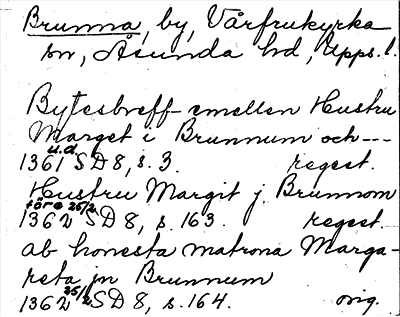 Brunna, by, Vårfrukyrka
sn, Åsunda hd, Upps. l.
Bytesbreff emellen Hustru
Marget i Brunnum och ---
1361 u.d. SD 8, s. 3. regest.
Hustru Margit j Brunnom
1362 före 25/2 SD 8, s. 163. regest.
ab honesta matrona Marga-
reta jn Brunnum
1362 25/2 SD 8, s. 164. orig.